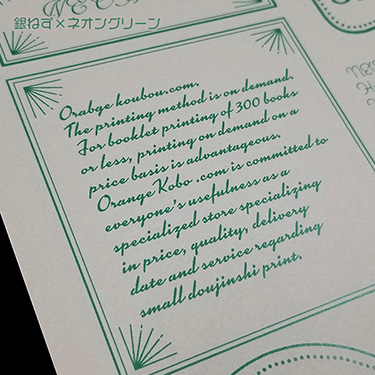 銀ねず×ネオングリーン
Orabge koubou.com.
The printing method is on demand.
For booklet printing of 300 books
or less, printing on demand on a
price basis is advantageous.
Orange Kobo .com is committed to
everyone's usefulness as a
specialized store specializing
in price, quality, delivery
date and service regarding
small doujinshi print.